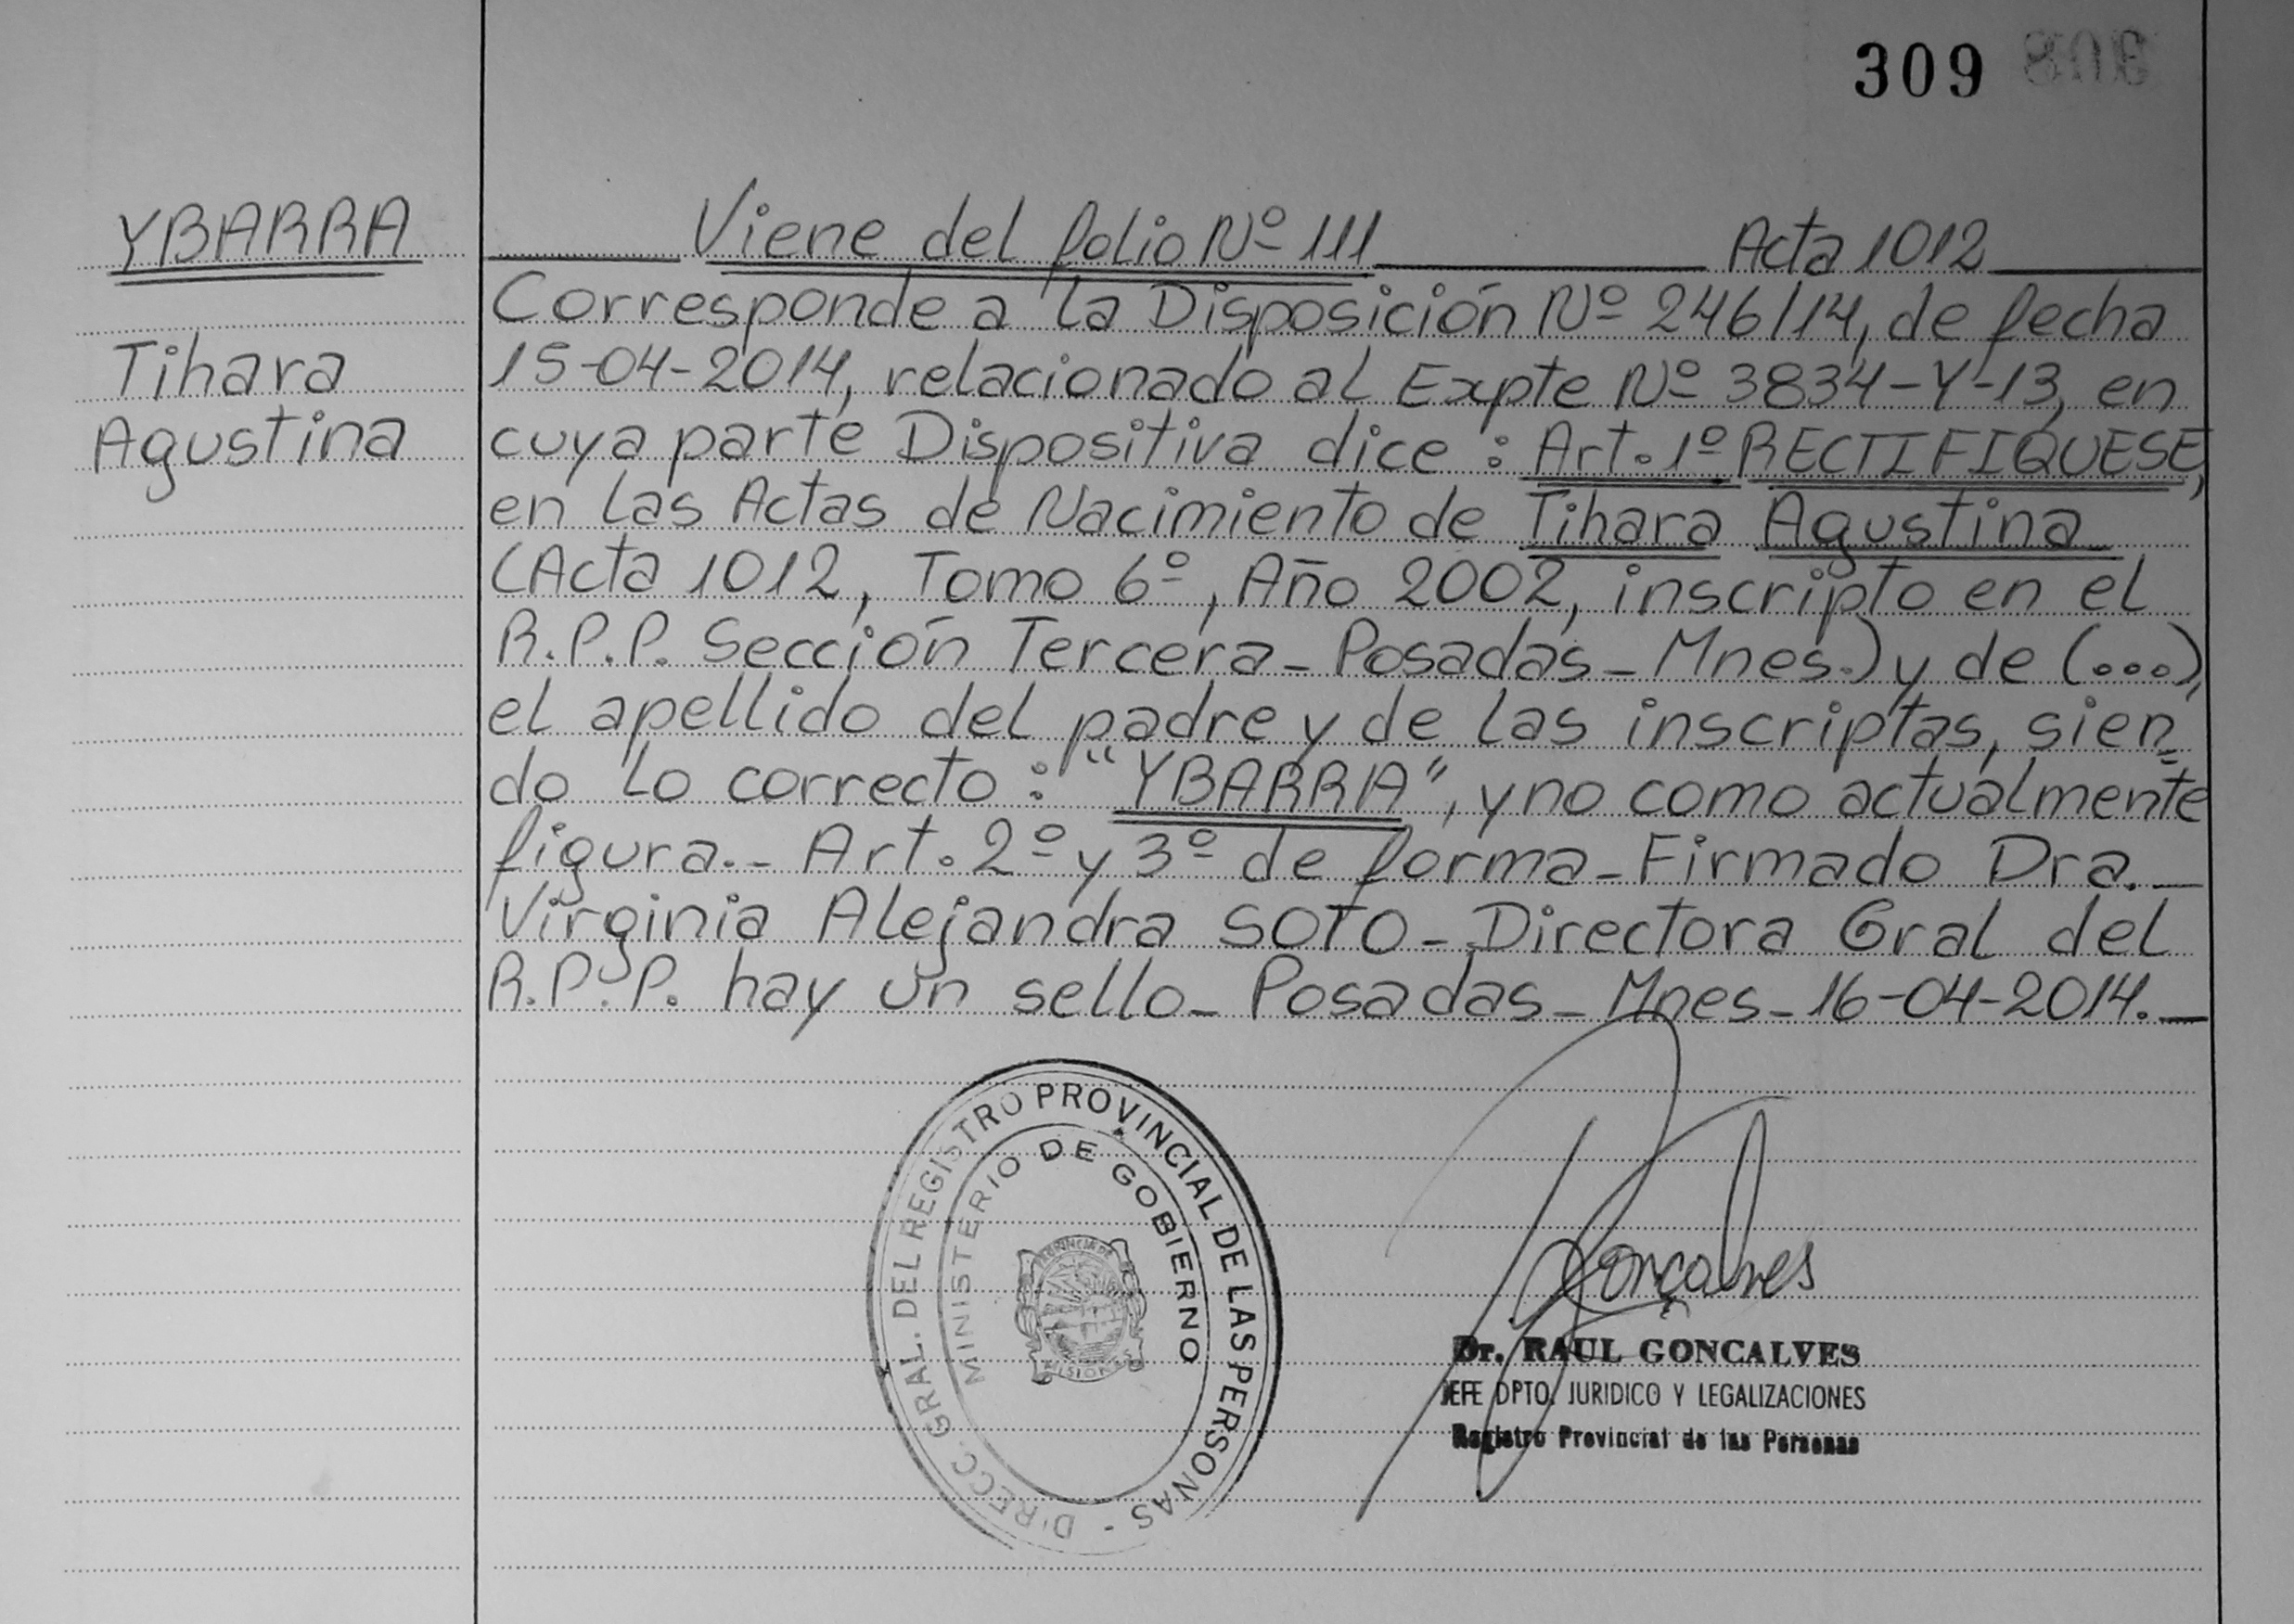 309
YBARRA
Tihara
Agustina
Viene del folio Nº 111 Acta 1012
Corresponde a la Disposición Nº 246/14, de fecha
15-04-2014, relacionado al Expte Nº 3834-Y-13, en
cuya parte Dispositiva dice: Art. 1º RECTIFIQUESE,
en las Actas de Nacimiento de Tihara Agustina
(Acta 1012, Tomo 6º, Año 2002, inscripto en el
R.P.P. Sección Tercera - Posadas - Mnes.) y de (...),
el apellido del padre y de las inscriptas, sien=
do lo correcto: "YBARRA", y no como actualmente
figura.- Art. 2º y 3º de forma - Firmado Dra.
Virginia Alejandra SOTO - Directora Gral del
R.P.P. hay un sello - Posadas - Mnes - 16-04-2014.
DIRECC. GRAL. DEL REGISTRO PROVINCIAL DE LAS PERSONAS -
MINISTERIO DE GOBIERNO
PROVINCIA DE
MISIONES
Gonçalves
Dr. RAUL GONCALVES
JEFE DPTO. JURIDICO Y LEGALIZACIONES
Registro Provincial de las Personas